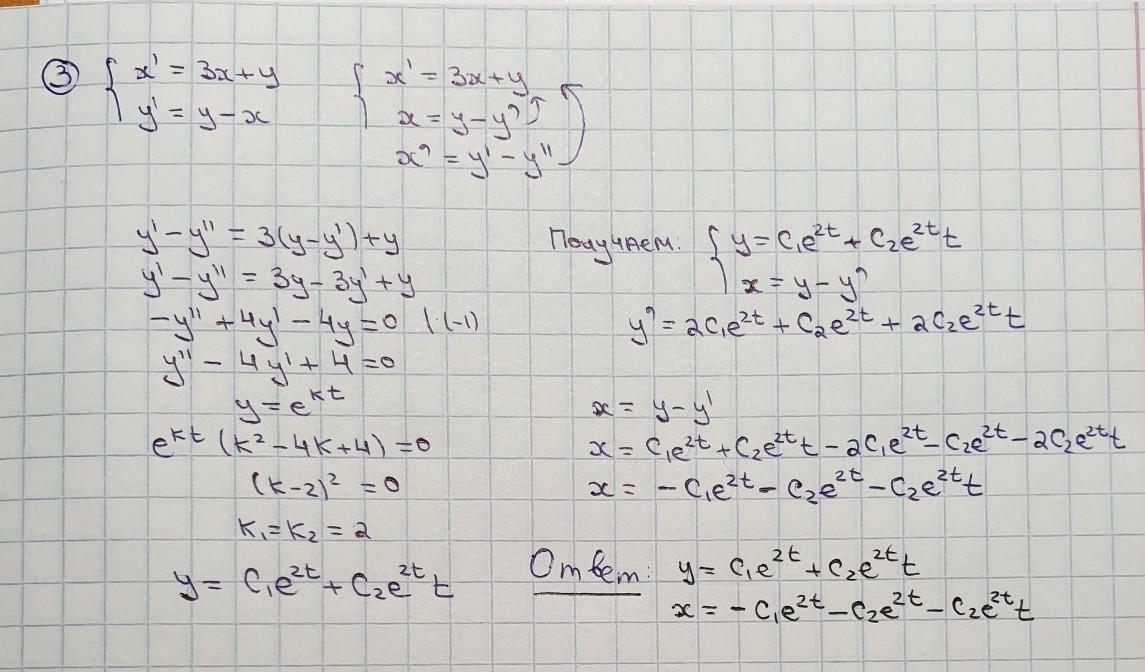 ③ { x' = 3x+y
y' = y-x
{ x' = 3x+y
x = y-y'
x' = y'-y''
y'-y'' = 3(y-y')+y
y'-y'' = 3y-3y'+y
-y''+4y'-4y=0 | (-1)
y''-4y'+4=0
y=e^{kt}
e^{kt}(k²-4k+4)=0
(k-2)²=0
k₁=k₂=2
y= C₁e^{2t}+C₂e^{2t}t
Получаем: { y=C₁e^{2t}+C₂e^{2t}t
x = y-y'
y'=2C₁e^{2t}+C₂e^{2t}+2C₂e^{2t}t
x= y-y'
x= C₁e^{2t}+C₂e^{2t}t-2C₁e^{2t}-C₂e^{2t}-2C₂e^{2t}t
x= -C₁e^{2t}-C₂e^{2t}-C₂e^{2t}t
Ответ: y= C₁e^{2t}+C₂e^{2t}t
x= -C₁e^{2t}-C₂e^{2t}-C₂e^{2t}t